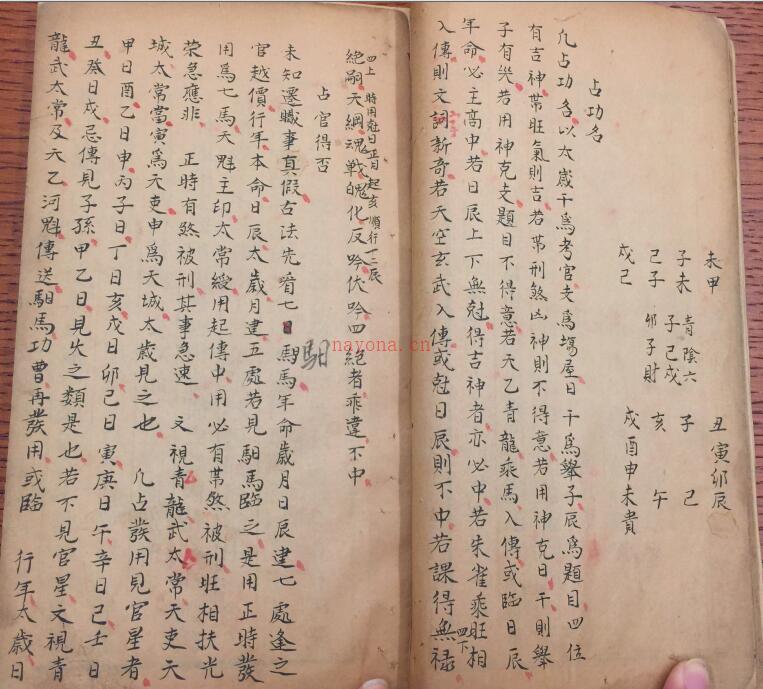 未甲
子未 青陰六 丑寅卯辰
己子 子己戌 子 巳
戊己 卯子財 亥 午
戌酉申未貴
占功名
凡占功名以太歲干為考官支為場屋日干為舉子辰為題目四位
有吉神帶旺氣則吉若帶刑煞凶神則不得意若用神克日干則舉
子有災若用神克支題目不得意若天乙青龍乘馬入傳或臨日辰
年命必主高中若日辰上下無尅得吉神者亦必中若朱雀乘旺相
入傳則文詞新奇若天空玄武入傳或尅日辰則不中若課得無祿
四下
四上 時用尅日正月起亥順行十二辰
絕嗣天綱魂戰魄化反吟伏吟四絕者乖違不中
占官得否
未知遷職事真假古法先看七馹馬年命歲月日辰建七處逢之
馹
官越價行年本命日辰太歲月建五處若見馹馬臨之是用正時發
用為七馬天魁主印太常綬用起傳中用必有帶煞被刑旺相扶光
榮急應非 正時有煞被刑其事急速 又視青龍武太常天吏天
城太常當寅為天吏申為天城太歲見之也 凡占發用見官星者
甲日酉乙日申丙子日丁日亥戊日卯己日寅庚日午辛日巳壬日
丑癸日戌忌傳見子孫甲乙日見火之類是也若不見官星又視青
龍武太常及天乙河魁傳送馹馬功曹再發用或臨 行年太歲日
nayona.cn